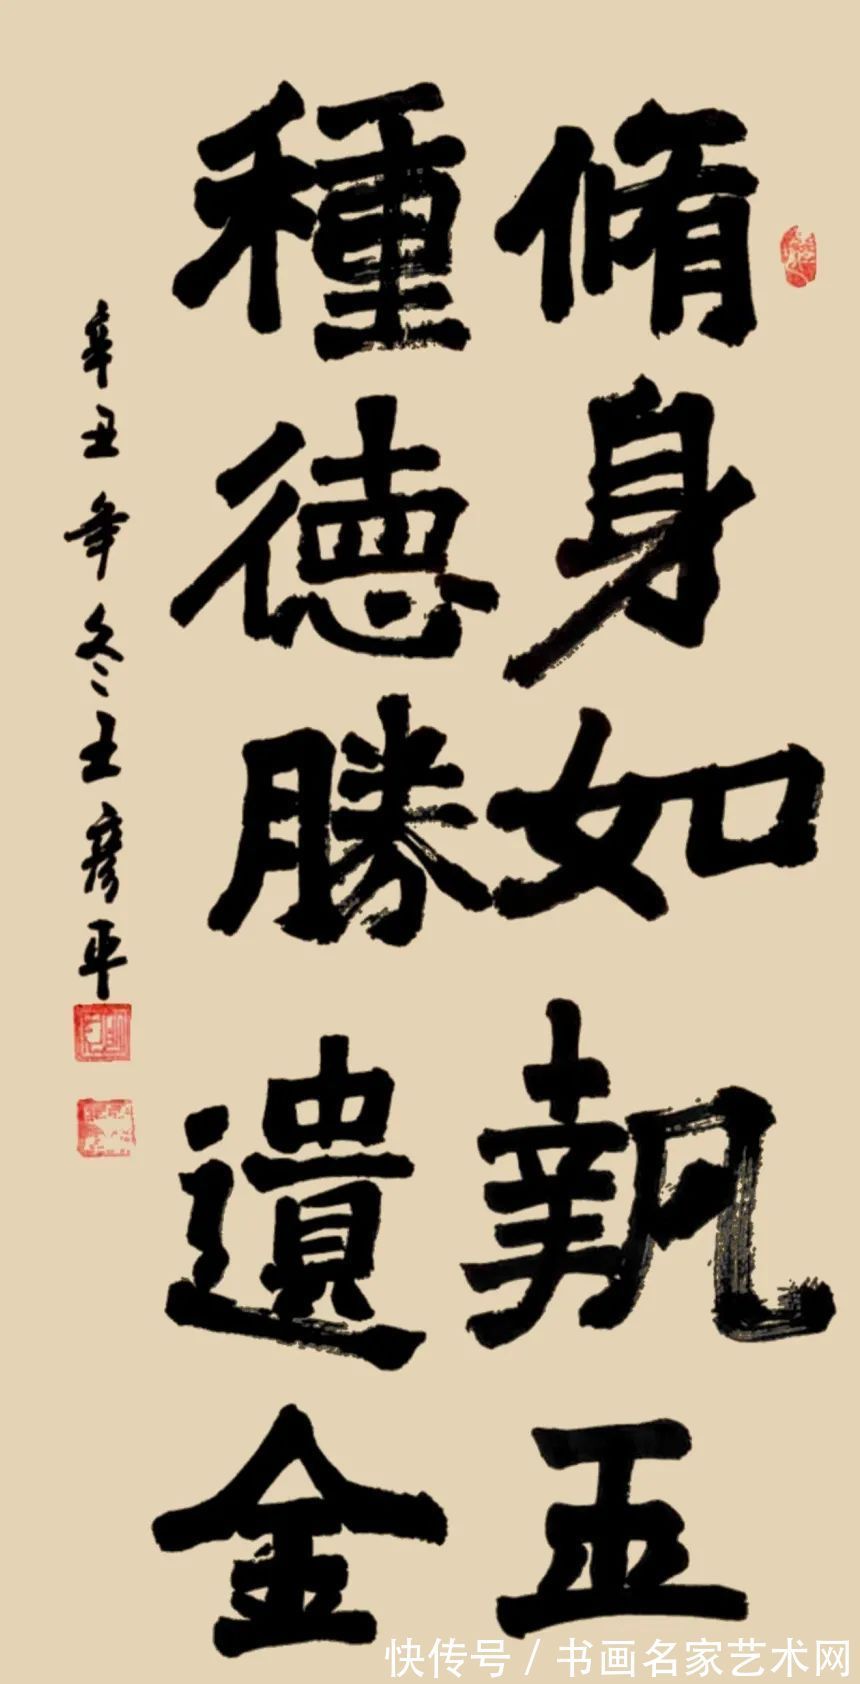 脩身如執玉
種徳勝遺金
辛丑年冬王彦平
快传号 / 书画名家艺术网